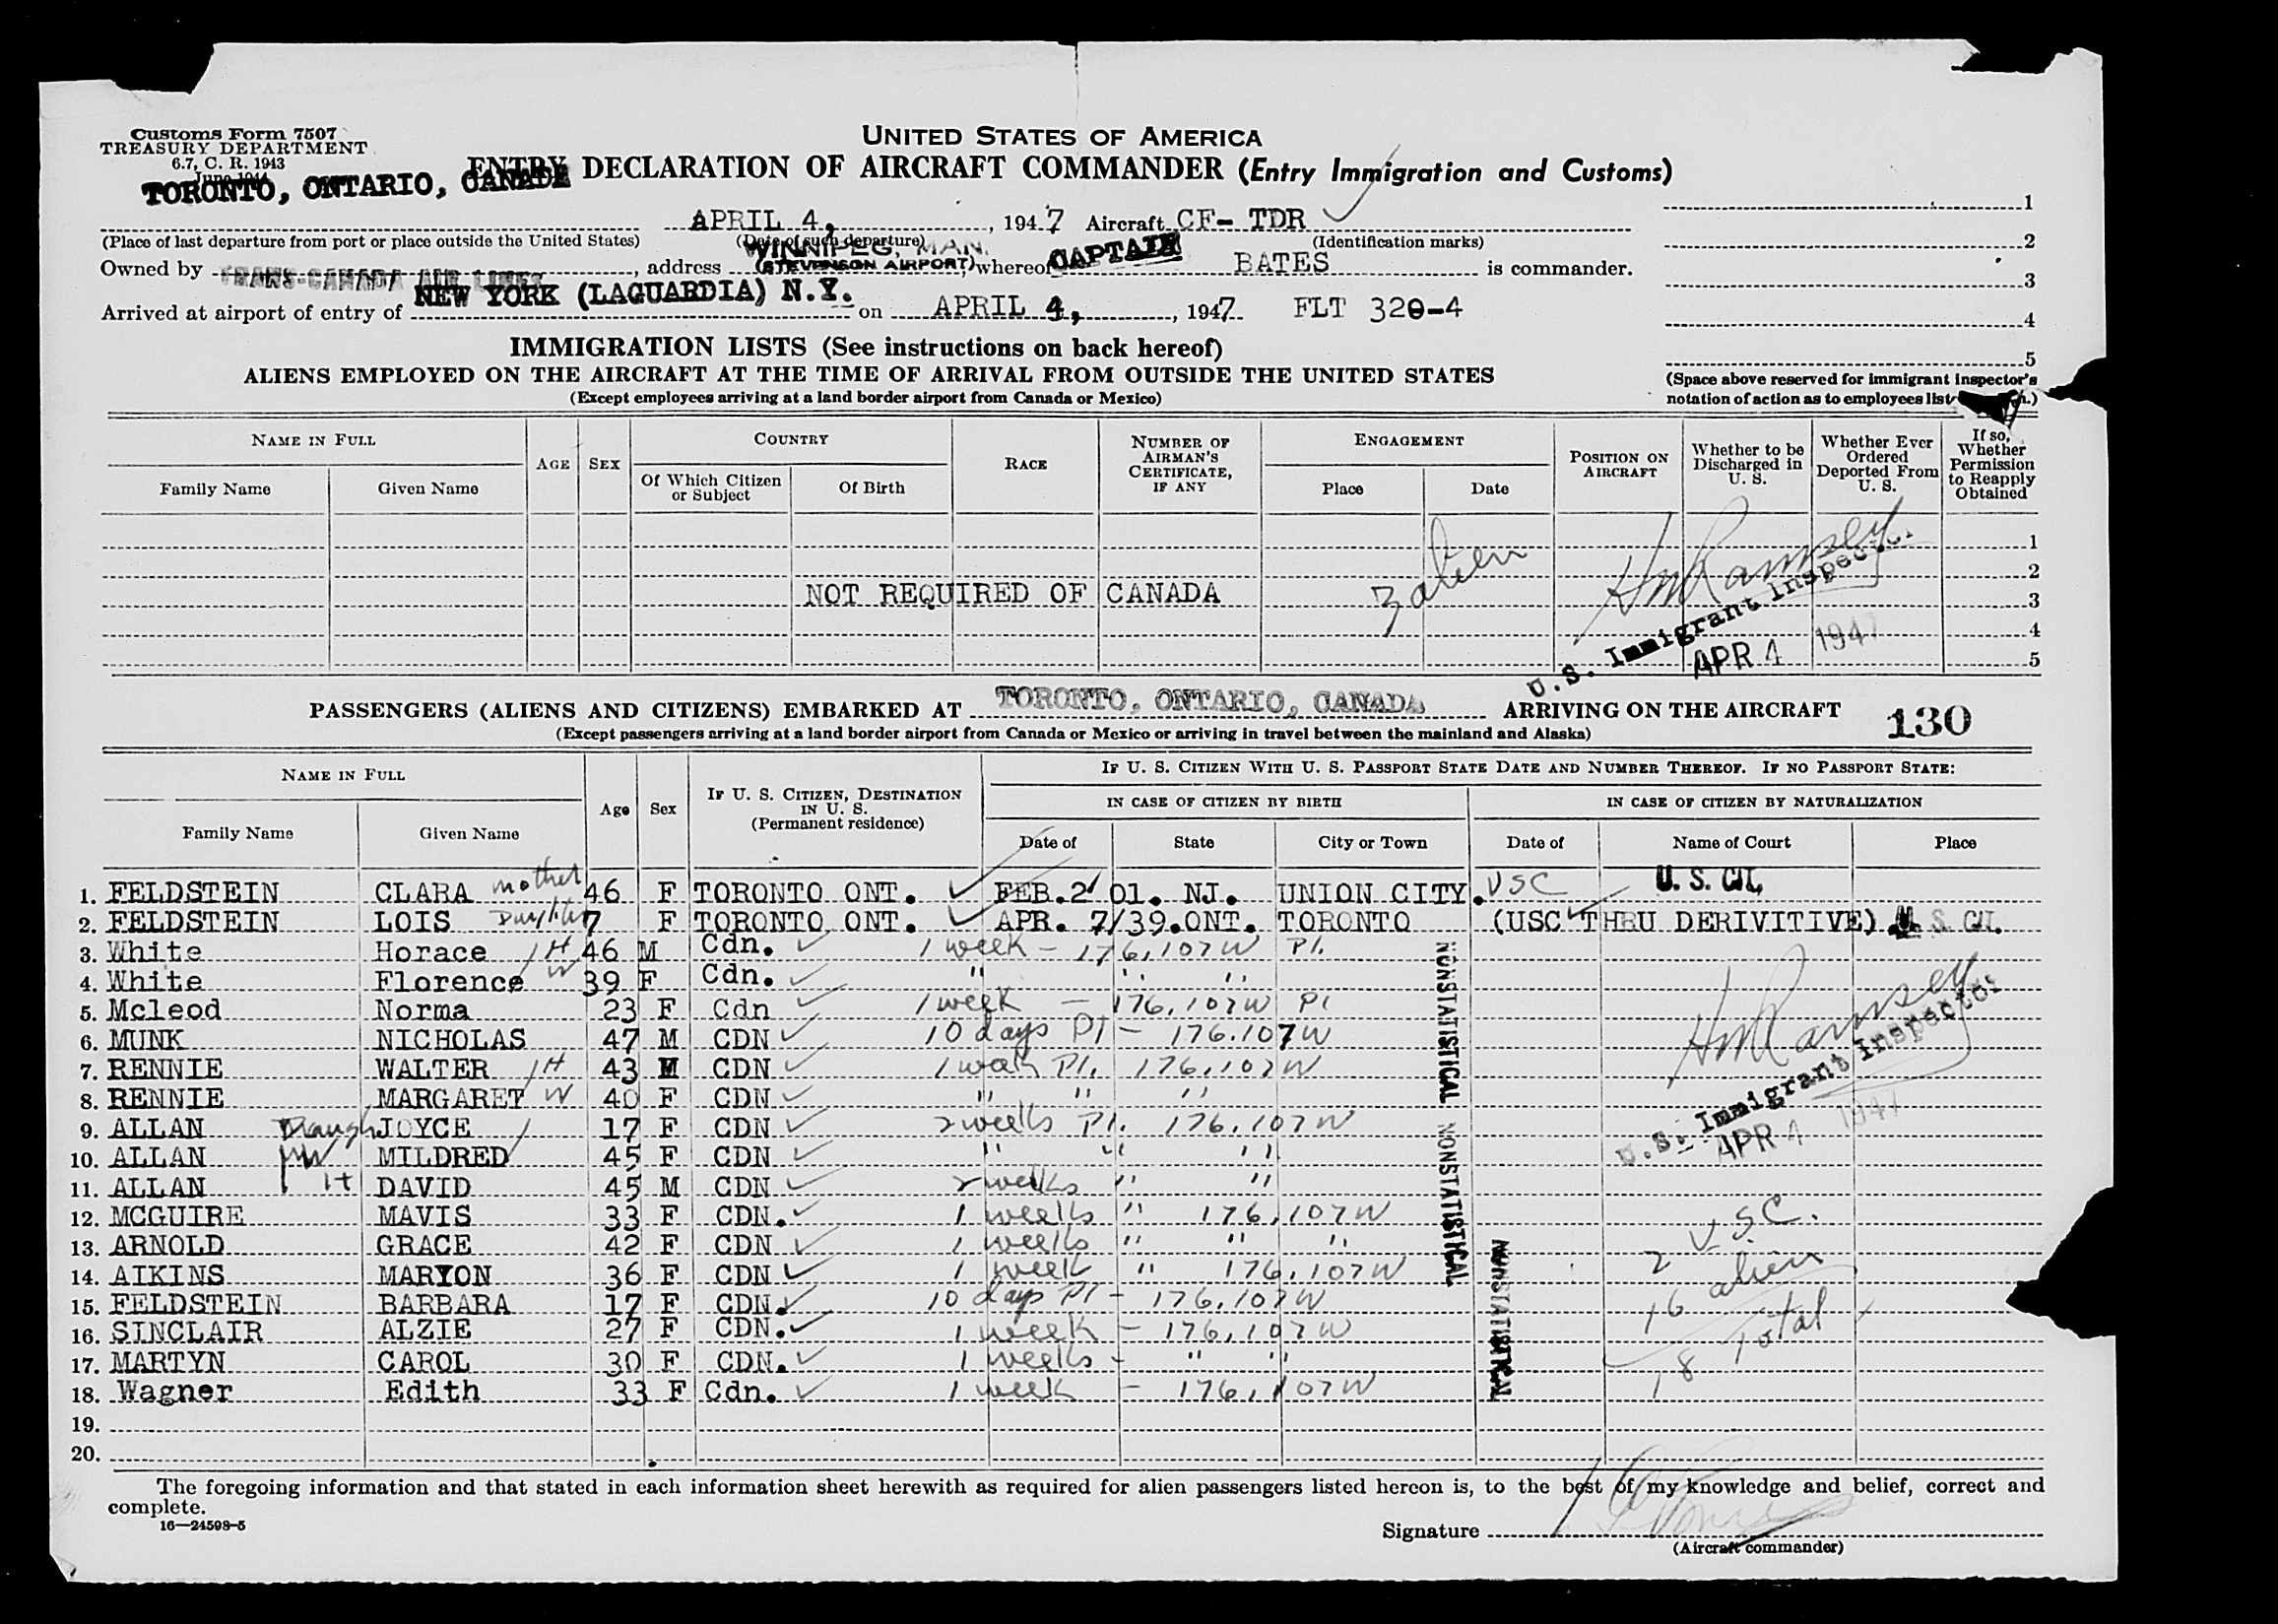 Customs Form 7507
TREASURY DEPARTMENT
6.7, C. R. 1943
June 1944
UNITED STATES OF AMERICA
ENTRY DECLARATION OF AIRCRAFT COMMANDER (Entry Immigration and Customs)
TORONTO, ONTARIO, CANADA
APRIL 4, , 1947 Aircraft CF- TDR
(Place of last departure from port or place outside the United States) (Date of such departure) (Identification marks)
WINNIPEG, MAN.
Owned by TRANS-CANADA AIR LINES, address (STEVENSON AIRPORT) whereof CAPTAIN BATES is commander.
Arrived at airport of entry of NEW YORK (LAGUARDIA) N.Y. on APRIL 4, , 1947 FLT 320-4
1
2
3
4
5
(Space above reserved for immigrant inspector's
notation of action as to employees list
IMMIGRATION LISTS (See instructions on back hereof)
ALIENS EMPLOYED ON THE AIRCRAFT AT THE TIME OF ARRIVAL FROM OUTSIDE THE UNITED STATES
(Except employees arriving at a land border airport from Canada or Mexico)
NAME IN FULL
Family Name Given Name
AGE SEX
COUNTRY
Of Which Citizen or Subject Of Birth
RACE
NUMBER OF AIRMAN'S CERTIFICATE, IF ANY
ENGAGEMENT
Place Date
POSITION ON AIRCRAFT
Whether to be Discharged in U. S.
Whether Ever Ordered Deported From U. S.
If so, Whether Permission to Reapply Obtained
1
2
NOT REQUIRED OF CANADA 3
4
5
3 alien
HM Ramsey
U.S. Immigrant Inspector
APR 4 1947
PASSENGERS (ALIENS AND CITIZENS) EMBARKED AT TORONTO, ONTARIO, CANADA ARRIVING ON THE AIRCRAFT 130
(Except passengers arriving at a land border airport from Canada or Mexico or arriving in travel between the mainland and Alaska)
NAME IN FULL
Family Name Given Name
Age Sex
IF U. S. CITIZEN, DESTINATION IN U. S. (Permanent residence)
IF U. S. CITIZEN WITH U. S. PASSPORT STATE DATE AND NUMBER THEREOF. IF NO PASSPORT STATE:
IN CASE OF CITIZEN BY BIRTH IN CASE OF CITIZEN BY NATURALIZATION
Date of State City or Town Date of Name of Court Place
1. FELDSTEIN CLARA mother 46 F TORONTO ONT. FEB.2 01. NJ. UNION CITY. USC U. S. Cit.
2. FELDSTEIN LOIS Daughter 7 F TORONTO ONT. APR. 7/39. ONT. TORONTO (USC THRU DERIVITIVE). U. S. Cit.
3. White Horace H 46 M Cdn. 1 week - 176.107W Pl.
4. White Florence W 39 F Cdn. " " "
5. Mcleod Norma 23 F Cdn 1 week - 176.107W Pl
6. MUNK NICHOLAS 47 M CDN 10 days Pl - 176.107W
7. RENNIE WALTER H 43 M CDN 1 week Pl. 176.107W
8. RENNIE MARGARET W 40 F CDN " " "
9. ALLAN Daugh JOYCE 17 F CDN 2 weeks Pl. 176.107W
10. ALLAN W MILDRED 45 F CDN " " "
11. ALLAN H DAVID 45 M CDN 2 weeks " "
12. MCGUIRE MAVIS 33 F CDN. 1 weeks " 176.107W
13. ARNOLD GRACE 42 F CDN 1 weeks " " "
14. AIKINS MARION 36 F CDN 1 week " 176.107W
15. FELDSTEIN BARBARA 17 F CDN. 10 days Pl - 176.107W
16. SINCLAIR ALZIE 27 F CDN. 1 week - 176.107W
17. MARTYN CAROL 30 F CDN. 1 weeks - " "
18. Wagner Edith 33 F Cdn. 1 week - 176.107W
19.
20.
NONSTATISTICAL NONSTATISTICAL
NONSTATISTICAL
HM Ramsey
U.S. Immigrant Inspector
APR 4 1947
2 U.S.C.
16 alien
18 Total
The foregoing information and that stated in each information sheet herewith as required for alien passengers listed hereon is, to the best of my knowledge and belief, correct and
complete.
16—24598-5
Signature
(Aircraft commander)